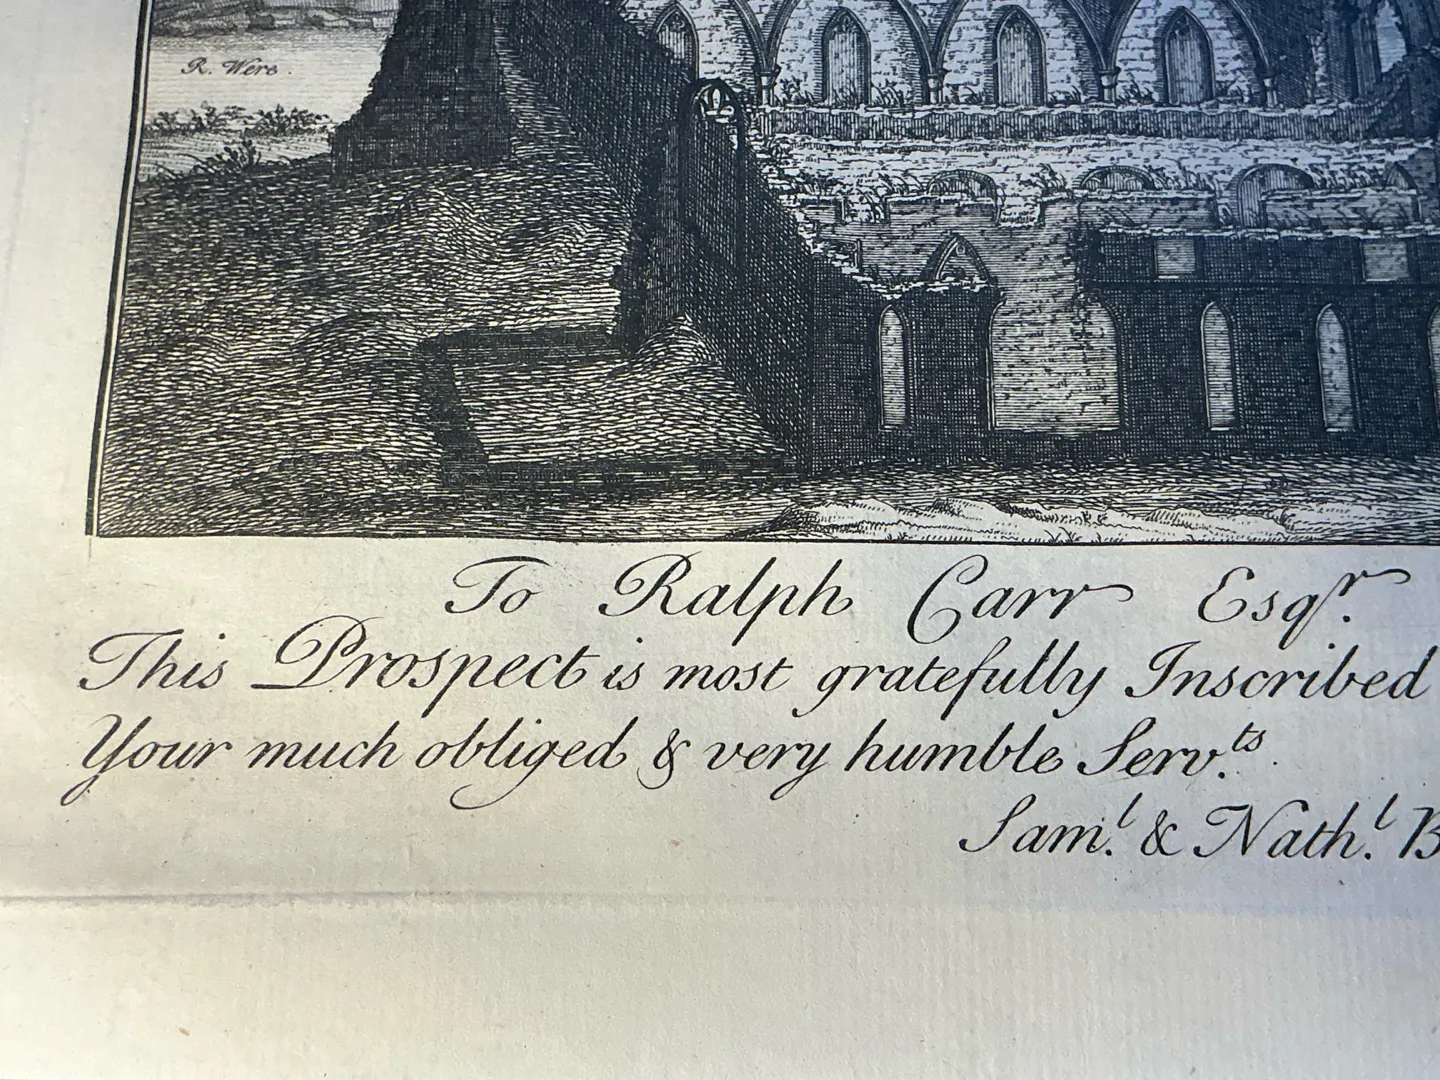 R. Were.
To Ralph Carr Esqr.
This Prospect is most gratefully Inscribed
Your much obliged & very humble Serv.ts
Sam.l & Nath.l B